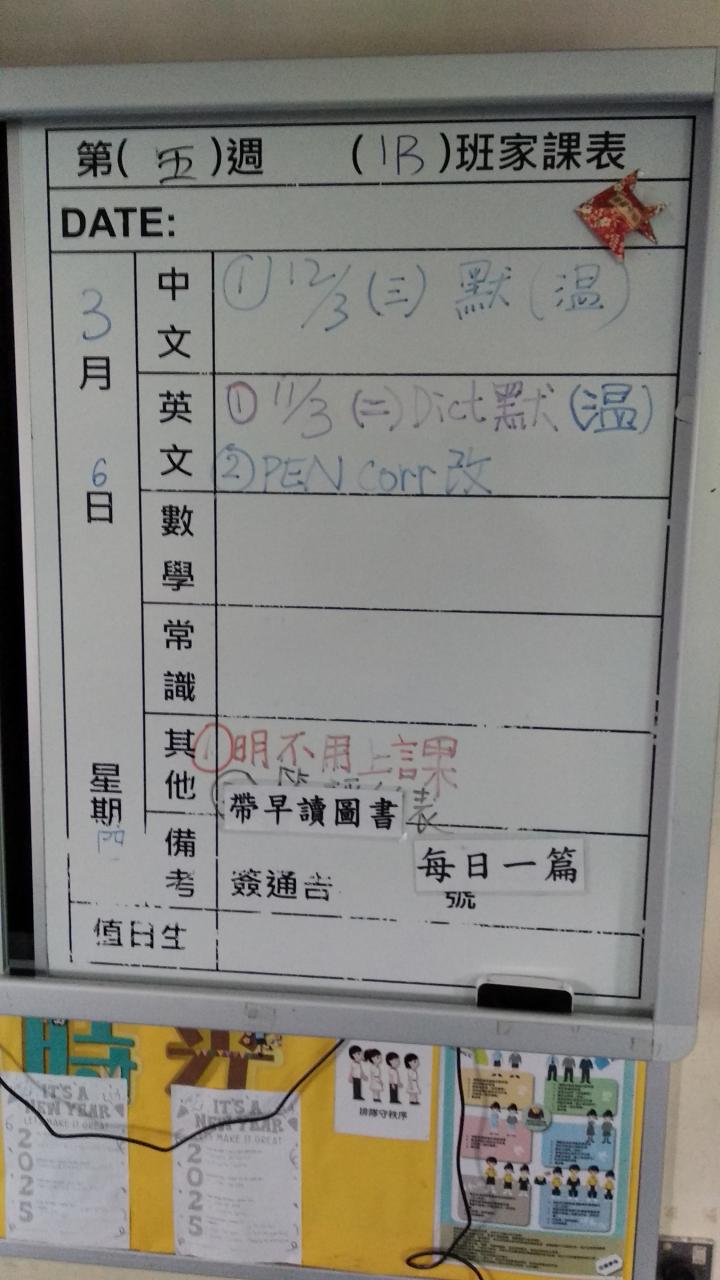 第(五)週 (1B)班家課表
DATE:
3月6日 星期四
中文 ①12/3(三)默(温)
英文 ①11/3(二)Dict默(温)
②PEN corr改
數學
常識
其他 ①明不用上課
帶早讀圖書 表
備考 每日一篇
簽通告 號
值日生
時光
IT'S A NEW YEAR
LET'S MAKE IT GREAT
2025
IT'S A NEW YEAR
LET'S MAKE IT GREAT
2025
排隊守秩序